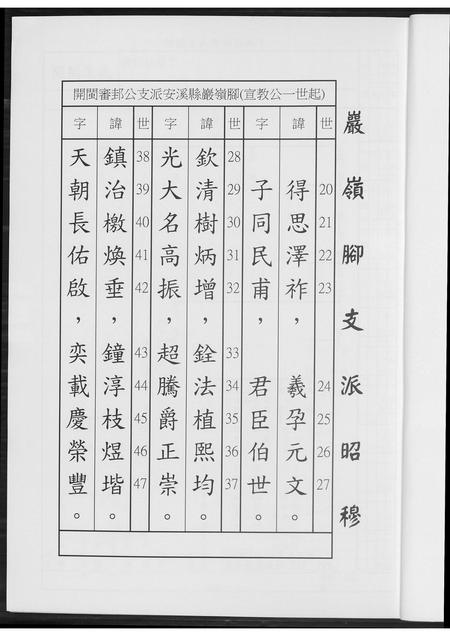 巖嶺腳支派昭穆
開閩審邽公支派安溪縣巖嶺腳(宣教公一世起)
世 20 21 22 23 24 25 26 27
諱 得思澤祚，羲孕元文。
字 子同民甫，君臣伯世。
世 28 29 30 31 32 33 34 35 36 37
諱 欽清樹炳增，銓法植熙均。
字 光大名高振，超騰爵正崇。
世 38 39 40 41 42 43 44 45 46 47
諱 鎮治檄煥垂，鐘淳枝煜堦。
字 天朝長佑啟，奕載慶榮豐。